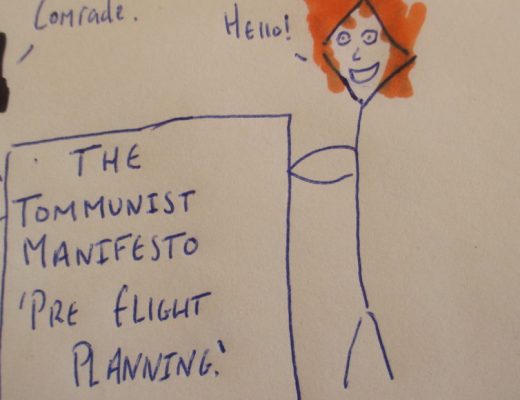 Comrade.
Hello!
THE
TOMMUNIST
MANIFESTO
'PRE FLIGHT
PLANNING.'